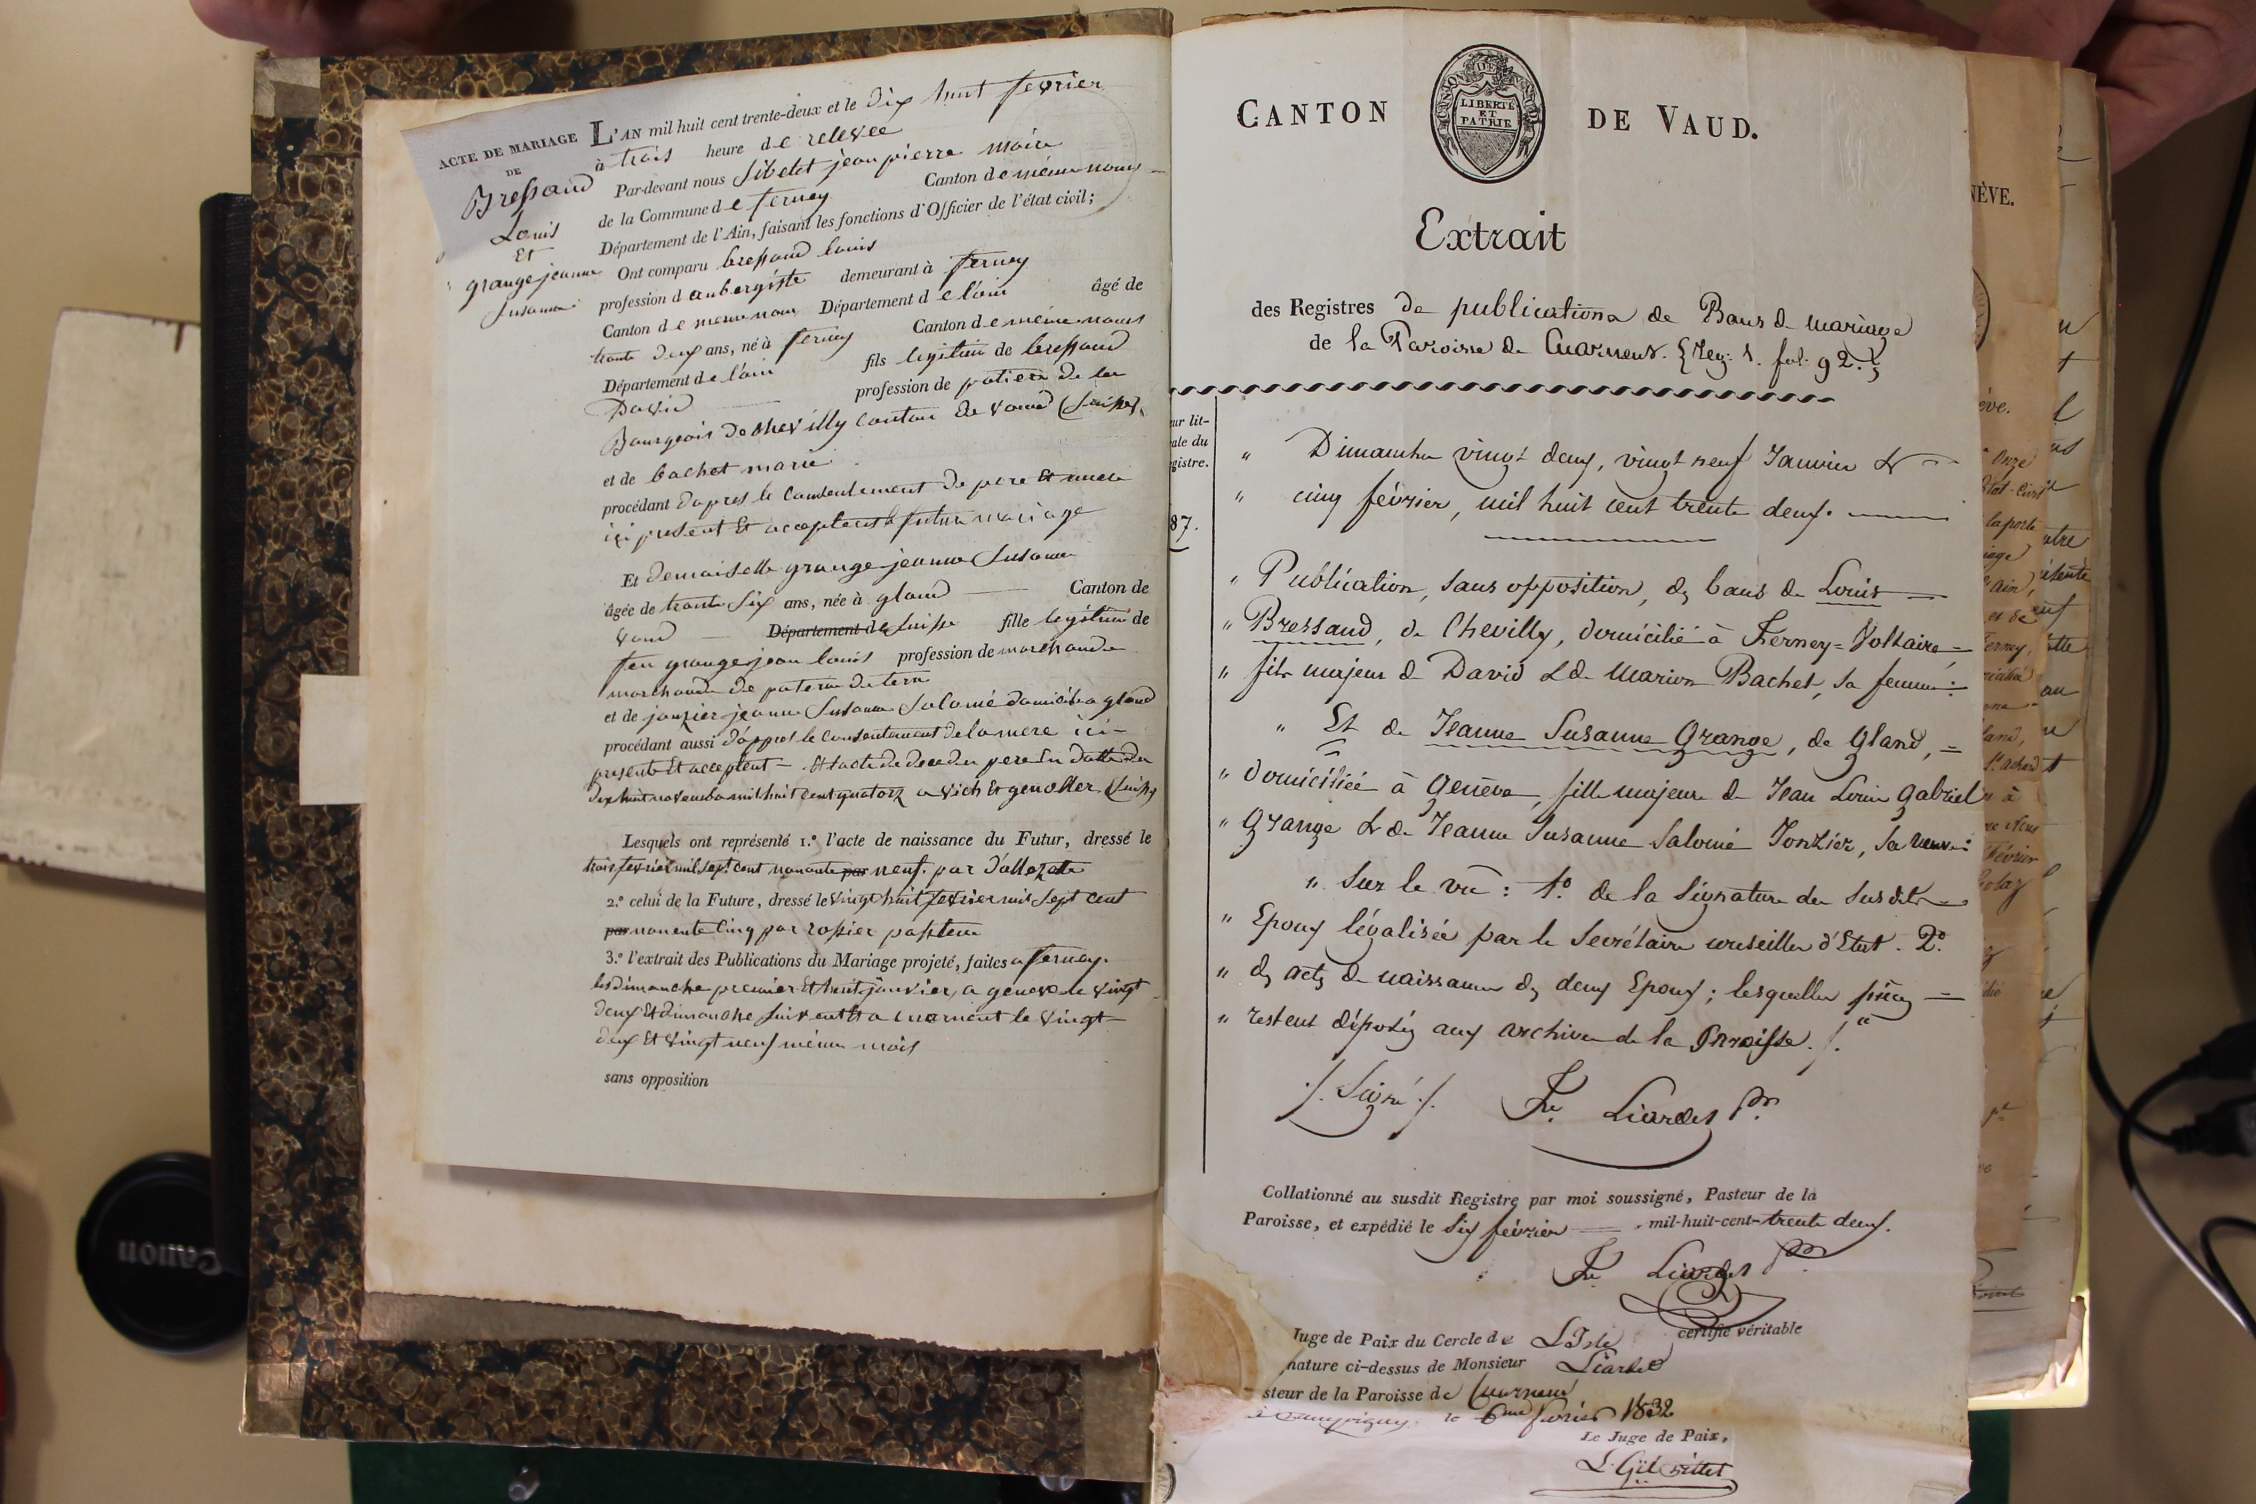 ACTE DE MARIAGE
DE
Bressand
Louis
Et
grange jeanne
Susanne
L'AN mil huit cent trente-deux et le dix huit fevrier
à trois heure de relevée
Par-devant nous Sibelet jean pierre maire
de la Commune de ferney Canton de même nom
Département de l'Ain, faisant les fonctions d'Officier de l'état civil;
Ont comparu bressand louis
profession d aubergiste demeurant à ferney
Canton de meme nom Département de l'ain âgé de
trente deux ans, né à ferney Canton de même nom
Département de l'ain fils legitime de bressand
David profession de potier de ter
Bourgeois de chevilly canton de vaud (Suisse)
et de bachet marie
procédant d'apres le consentement de pere Et mere
ici present Et acceptant le futur mariage
Et demoiselle grange jeanne Susanne
âgée de trente six ans, née à gland Canton de
vaud Département de Suisse fille legitime de
feu grange jean louis profession de marchande
marchande de poterie de terre
et de jonzier jeanne Susanne Salomé domiciliée a gland
procédant aussi d'appres le consentement de la mere ici
presente Et acceptent Et l'acte de deces du pere En datte du
dix huit novembre mil huit cent quatorze a vich Et genollier (Suisse)
Lesquels ont représenté 1.° l'acte de naissance du Futur, dressé le
trois fevrier mil sept cent nonante par neuf. par
2.° celui de la Future, dressé le vingt huit fevrier mil sept cent
par nonente cinq par rossier pasteur
3.° l'extrait des Publications du Mariage projeté, faites a ferney
les dimanche premier Et huit janvier, a geneve le vingt
deux Et dimanche suivent Et a cuarnent le vingt
deux Et vingt neuf même mois
sans opposition
CANTON DE VAUD.
CANTON DE VAUD
LIBERTÉ
ET
PATRIE
Extrait
des Registres de publications de Bans de mariage
de la Paroisse de Cuarnens. {Reg: 1. fol: 92.}
ur lit-
ale du
gistre.
87.
" Dimanche vingt deux, vingt neuf Janvier &
" cinq février, mil huit cent trente deux.
" Publication, sans opposition, des bans de Louis
" Bressand, de Chevilly, domicilié à Ferney=Voltaire,
" fils majeur de David & de Marion Bachet, sa femme:
" Et de Jeanne Susanne Grange, de Gland,
" domiciliée à Genève, fille majeure de Jean Louis Gabriel
" Grange & de Jeanne Susanne Salomé Jonzier, sa veuve:
" Sur le vû: 1.° de la Signature des susdits
" Epoux légalisée par le Secrétaire conseiller d'Etat. 2.°
" des actes de naissance des deux Epoux; lesquelles pièces
" restent déposées aux archives de la Paroisse. /. "
./. Signé ./. Fr. Liardet Pr.
Collationné au susdit Registre par moi soussigné, Pasteur de la
Paroisse, et expédié le six février mil-huit-cent-trente deux.
Fr. Liardet Pr.
Juge de Paix du Cercle de L'Isle certifie véritable
nature ci-dessus de Monsieur Liardet
steur de la Paroisse de Cuarnens
le 6me février 1832
Le Juge de Paix,
NÈVE.
Canon